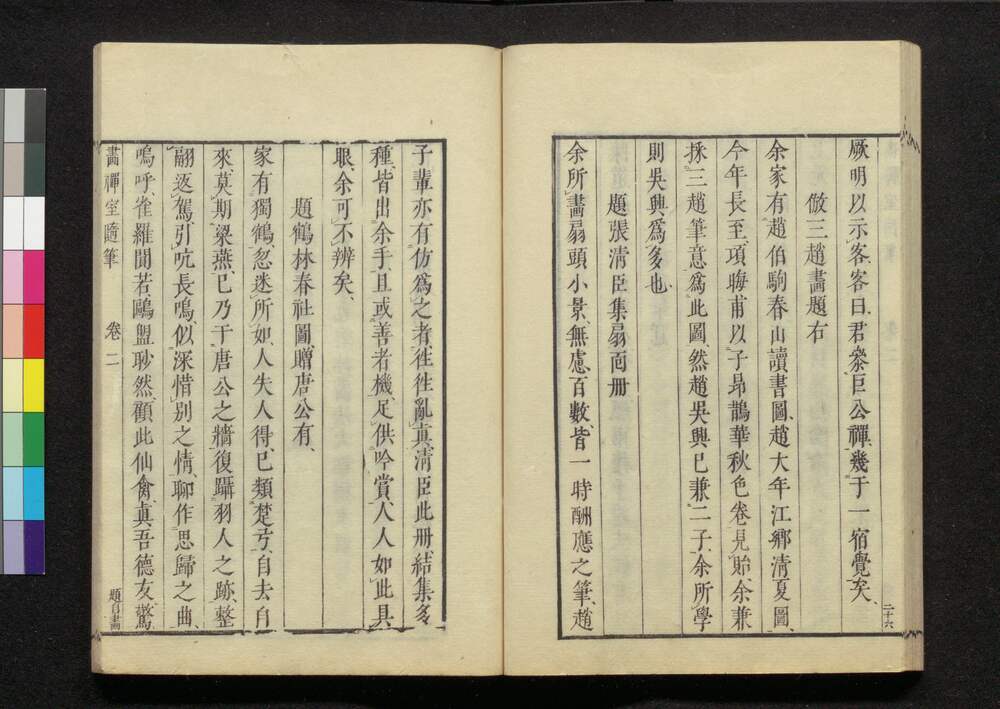 厥明以示客客曰君參巨公禪幾于一宿覺矣
倣三趙畫題右
余家有趙伯駒春山讀書圖趙大年江鄉清夏圖
今年長至項晦甫以子昂鵲華秋色卷見貽余兼
採三趙筆意爲此圖然趙吳興已兼二子余所學
則吳興爲多也
題張清臣集扇面册
余所畫扇頭小景無慮百數皆一時酬應之筆趙
二十六
子輩亦有仿爲之者徃徃亂真清臣此册結集多
種皆出余手且或善者機足供吟賞人人如此具
眼余可不辨矣
題鶴林春社圖贈唐公有
家有獨鶴忽迷所如人失人得已類楚弓自去自
來莫期梁燕已乃于唐公之牆復躡羽人之跡整
翮返駕引吭長鳴似深惜別之情聊作思歸之曲
嗚呼雀羅閒若鷗盟耿然顧此仙禽眞吾德友驚
畫禪室隨筆 卷二 題自畫